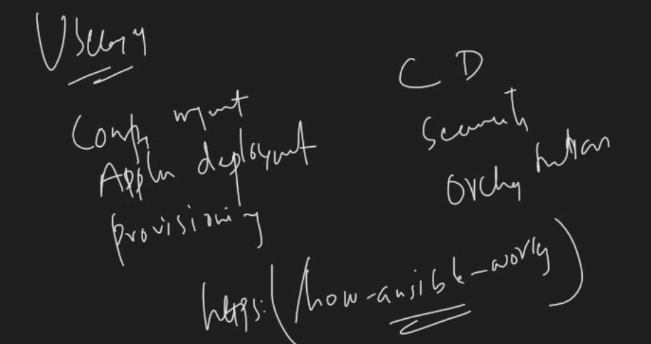 Config mgmt
Appln deployment
Provisioning
CD
Security
Orchestration
https:(/how-ansible-works)